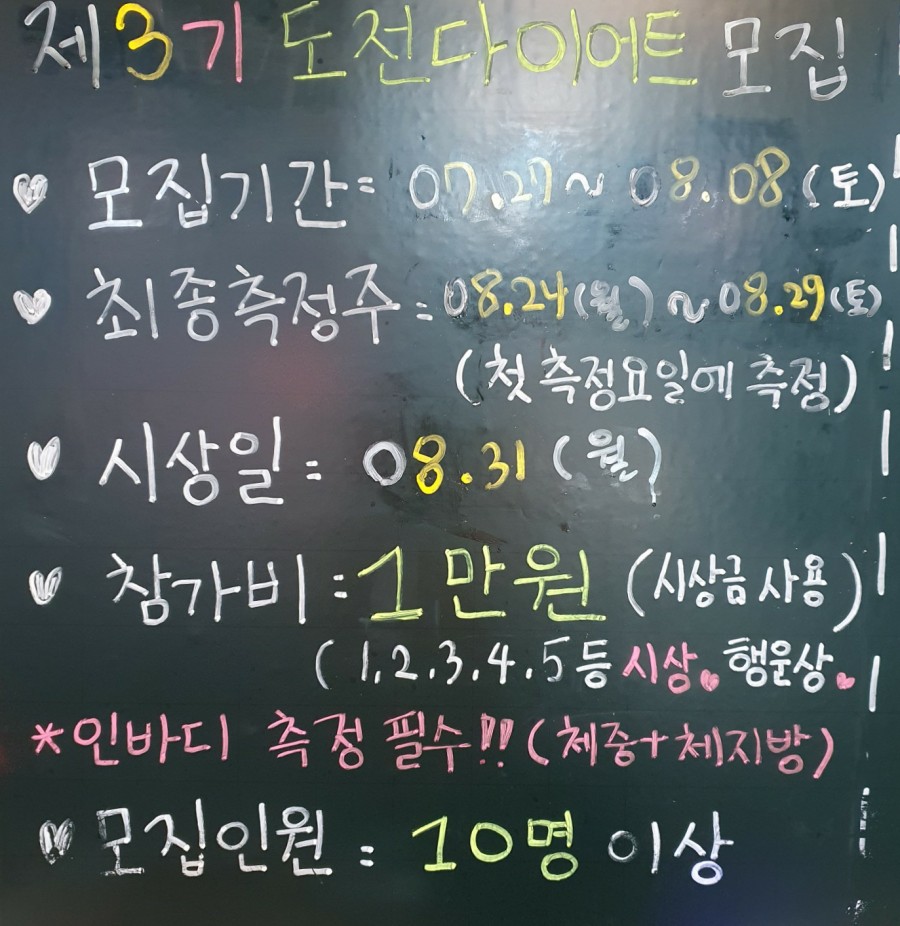 제3기 도전다이어트 모집
♥ 모집기간= 07.27~08.08(토)
♥ 최종측정주=08.24(월)~08.29(토)
(첫 측정요일에 측정)
♥ 시상일= 08.31(월)
♥ 참가비=1만원(시상금 사용)
(1,2.3.4.5등 시상♥행운상♥
*인바디 측정 필수!!(체중+체지방)
♥ 모집인원= 10명 이상